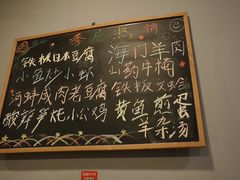 季店热销
铁板日本豆腐
小鱼炒小虾
河蚌咸肉老豆腐
酸芽笋炖小公鸡
海门羊肉
山药牛梅
铁板文蛤
黄鱼煎蛋
羊杂汤